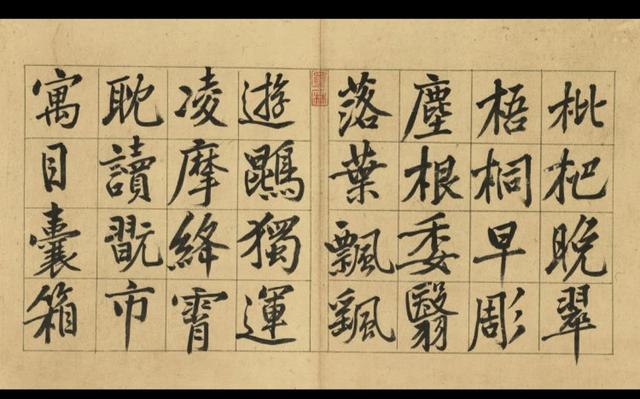 枇杷晚翠
梧桐早彫
塵根委翳
落葉飄颻
遊鵾獨運
凌摩絳霄
耽讀翫市
寓目囊箱